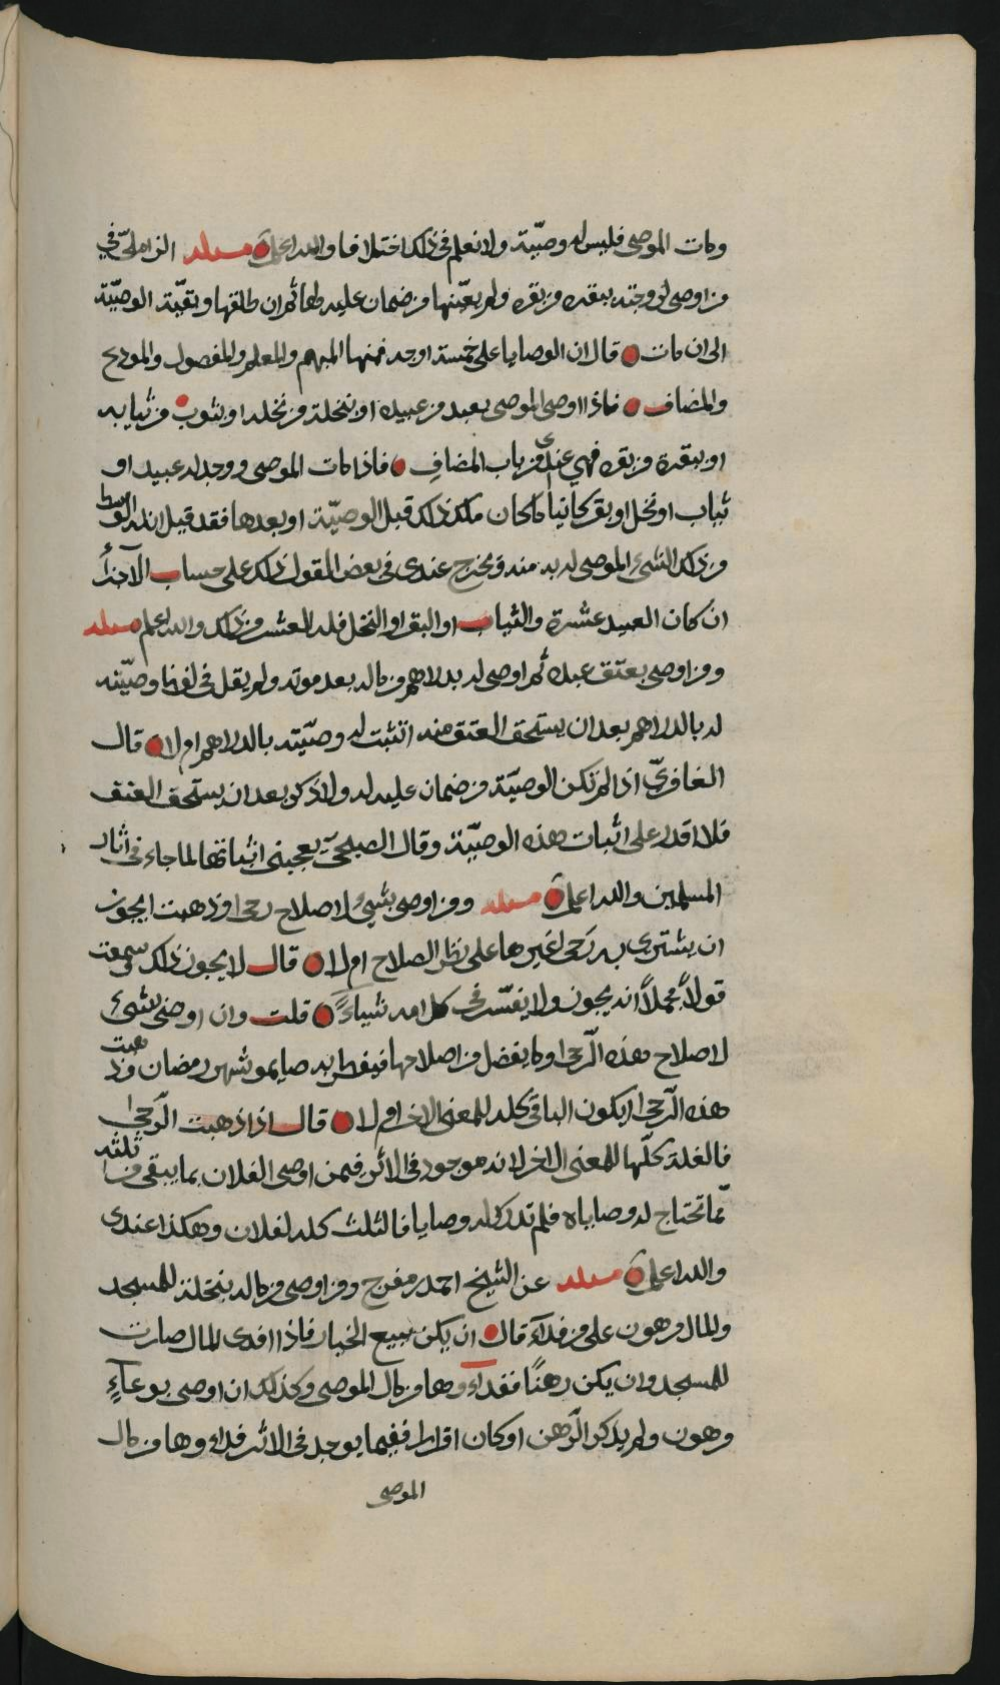 ومات الموصي فليس له وصيّة ولا نعلم في ذلك اختلافا والله اعلم مسئلة الزاملي في
من اوصى لزوجته ببقره من بقره ولم يعيّنها من ضمان عليه لها ثم ان طلقها وبقيّة الوصيّة
الى ان مات قال ان الوصايا على خمسة اوجه فمنها المبهم والمعلم والمفصول والمودع
والمضاف فاذا اوصى الموصي بعبد من عبيده او بنخلة من نخله او بثوب من ثيابه
او ببقرة من بقره فهي عندي من باب المضاف فاذا مات الموصي ووجد له عبيد او
ثياب او نخل او بقر كانيا ما كان ملك ذلك قبل الوصيّة او بعدها فقد قيل انه له الوسط
من ذلك الشيء الموصى له به منه ويخرج عندي في بعض القول ذلك على حساب الآجزأ
ان كان العبيد عشرة والثياب او البقر او النخل فله العشر من ذلك والله اعلم مسئلة
ومن اوصى بعتق عبده ثم اوصى له بدراهم من ماله بعد موته ولم يقل في لفظ وصيّته
له بالدراهم بعد ان يستحق العتق منه اتثبت له وصيّته بالدراهم ام لا قال
الغافريّ اذا لم تكن الوصيّة من ضمان عليه له ولا ذكر بعد ان يستحق العتق
فلا اقدر على اثبات هذه الوصيّة وقال الصبحيّ يعجبني اثباتها لما جاء في اثار
المسلمين والله اعلم مسئلة ومن اوصى بشيء لاصلاح رحى او ذهبت ايجوز
ان يشترى به رحى لغيرها على نظر الصلاح ام لا قال لا يجوز ذلك وسمعت
قولاً مجملاً انه يجوز ولا يفسّر في كلامه شياءً قلت وان اوصى بشيء
لاصلاح هذه الرّحى وما يفضل من اصلاحها فيفطر به صايمو شهر رمضان وذهبت
هذه الرّحى ايكون الباقي كله للمعنى الاخر ام لا قال اذا ذهبت الرّحى
فالغلة كلّها للمعنى الاخر لانه موجود في الاثر فيمن اوصى لفلان بما يبقى من ثلثه
ممّا تحتاج له وصاياه فلم تدرك له وصايا فالثلث كله لفلان وهكذا عندي
والله اعلم مسئلة عن الشيخ احمد بن مفرج ومن اوصى من ماله بنخلة للمسجد
والمال مرهون على من فداؤه قال ان يكن ببيع الخيار فاذا افدى المال صارت
للمسجد وان يكن رهنًا ففداؤها من مال الموصي وكذلك ان اوصى بوعآءٍ
مرهون ولم يذكر الرّهن او كان اقرارا ففيما يوجد في الاثر فداوها من مال
الموصي